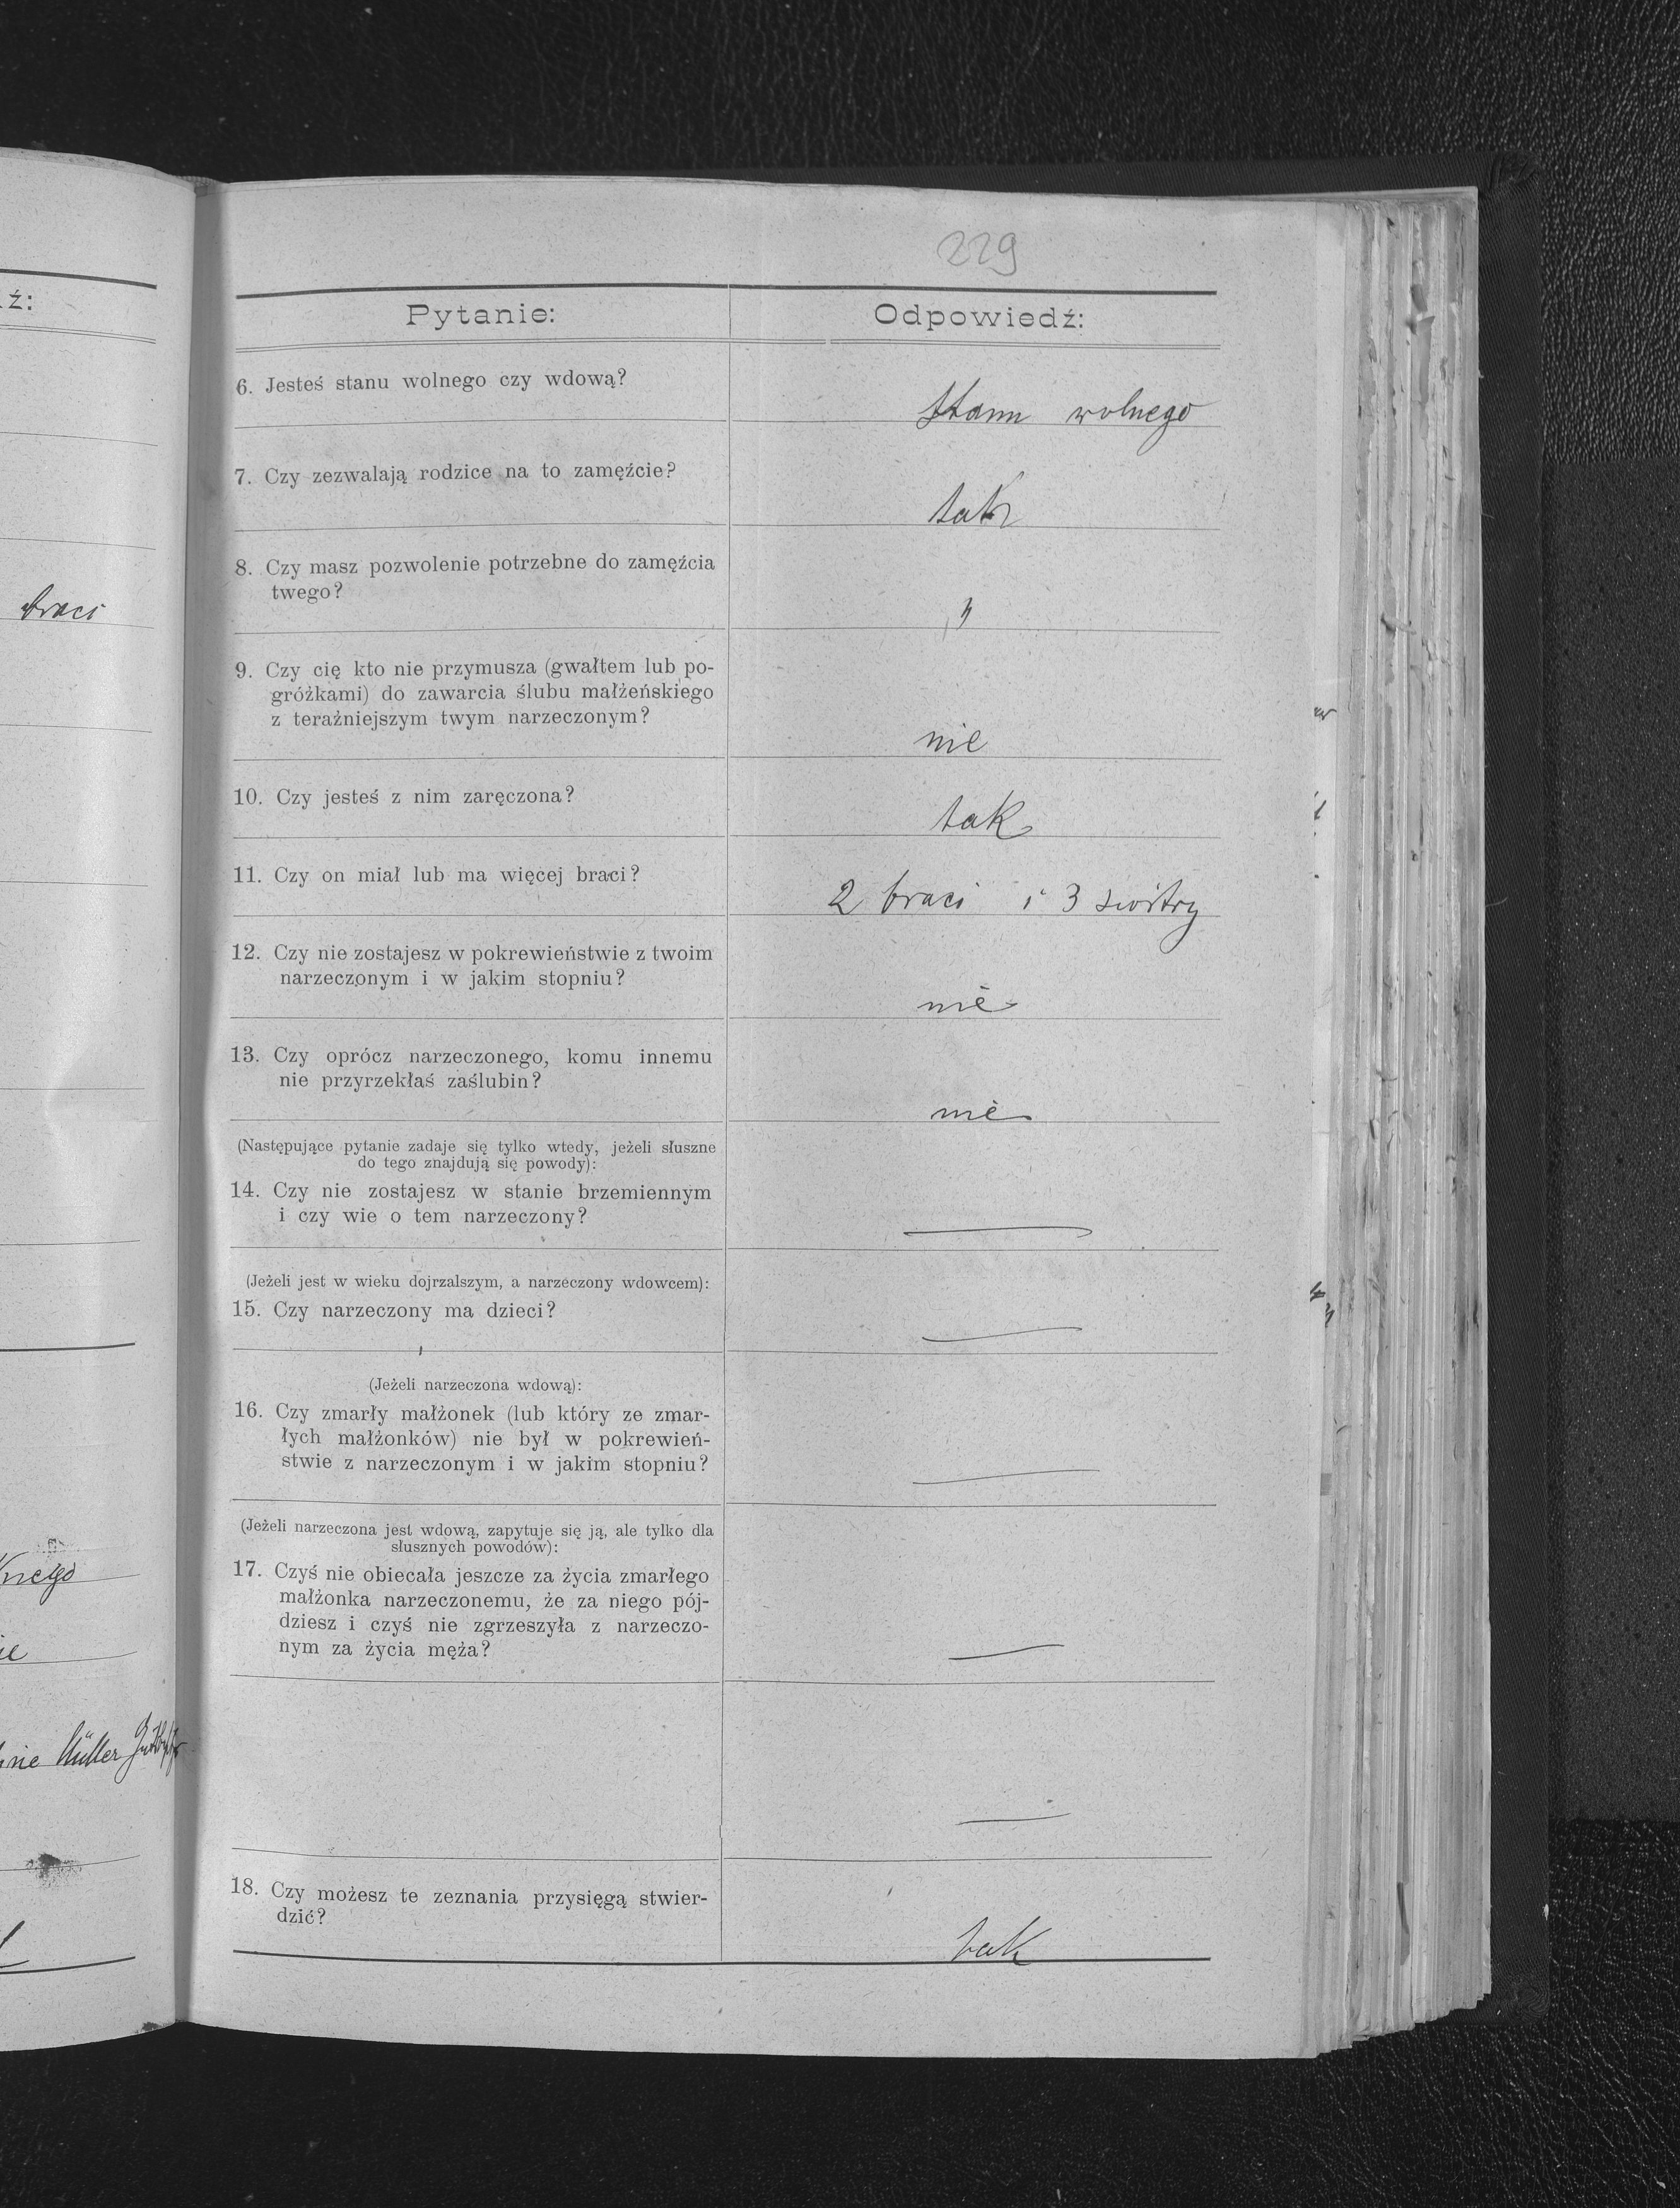 229
ź:
Pytanie:
Odpowiedź:
6. Jesteś stanu wolnego czy wdową?
stanu wolnego
7. Czy zezwalają rodzice na to zamęźcie?
tak
8. Czy masz pozwolenie potrzebne do zamęźcia
twego?
"
braci
9. Czy cię kto nie przymusza (gwałtem lub po-
gróżkami) do zawarcia ślubu małżeńskiego
z teraźniejszym twym narzeczonym?
nie
10. Czy jesteś z nim zaręczona?
tak
11. Czy on miał lub ma więcej braci?
2 braci i 3 siostry
12. Czy nie zostajesz w pokrewieństwie z twoim
narzeczonym i w jakim stopniu?
nie
13. Czy oprócz narzeczonego, komu innemu
nie przyrzekłaś zaślubin?
nie
(Następujące pytanie zadaje się tylko wtedy, jeżeli słuszne
do tego znajdują się powody):
14. Czy nie zostajesz w stanie brzemiennym
i czy wie o tem narzeczony?
(Jeżeli jest w wieku dojrzalszym, a narzeczony wdowcem):
15. Czy narzeczony ma dzieci?
(Jeżeli narzeczona wdową):
16. Czy zmarły małżonek (lub który ze zmar-
łych małżonków) nie był w pokrewień-
stwie z narzeczonym i w jakim stopniu?
(Jeżeli narzeczona jest wdową, zapytuje się ją, ale tylko dla
słusznych powodów):
17. Czyś nie obiecała jeszcze za życia zmarłego
małżonka narzeczonemu, że za niego pój-
dziesz i czyś nie zgrzeszyła z narzeczo-
nym za życia męża?
Müller
18. Czy możesz te zeznania przysięgą stwier-
dzić?
tak